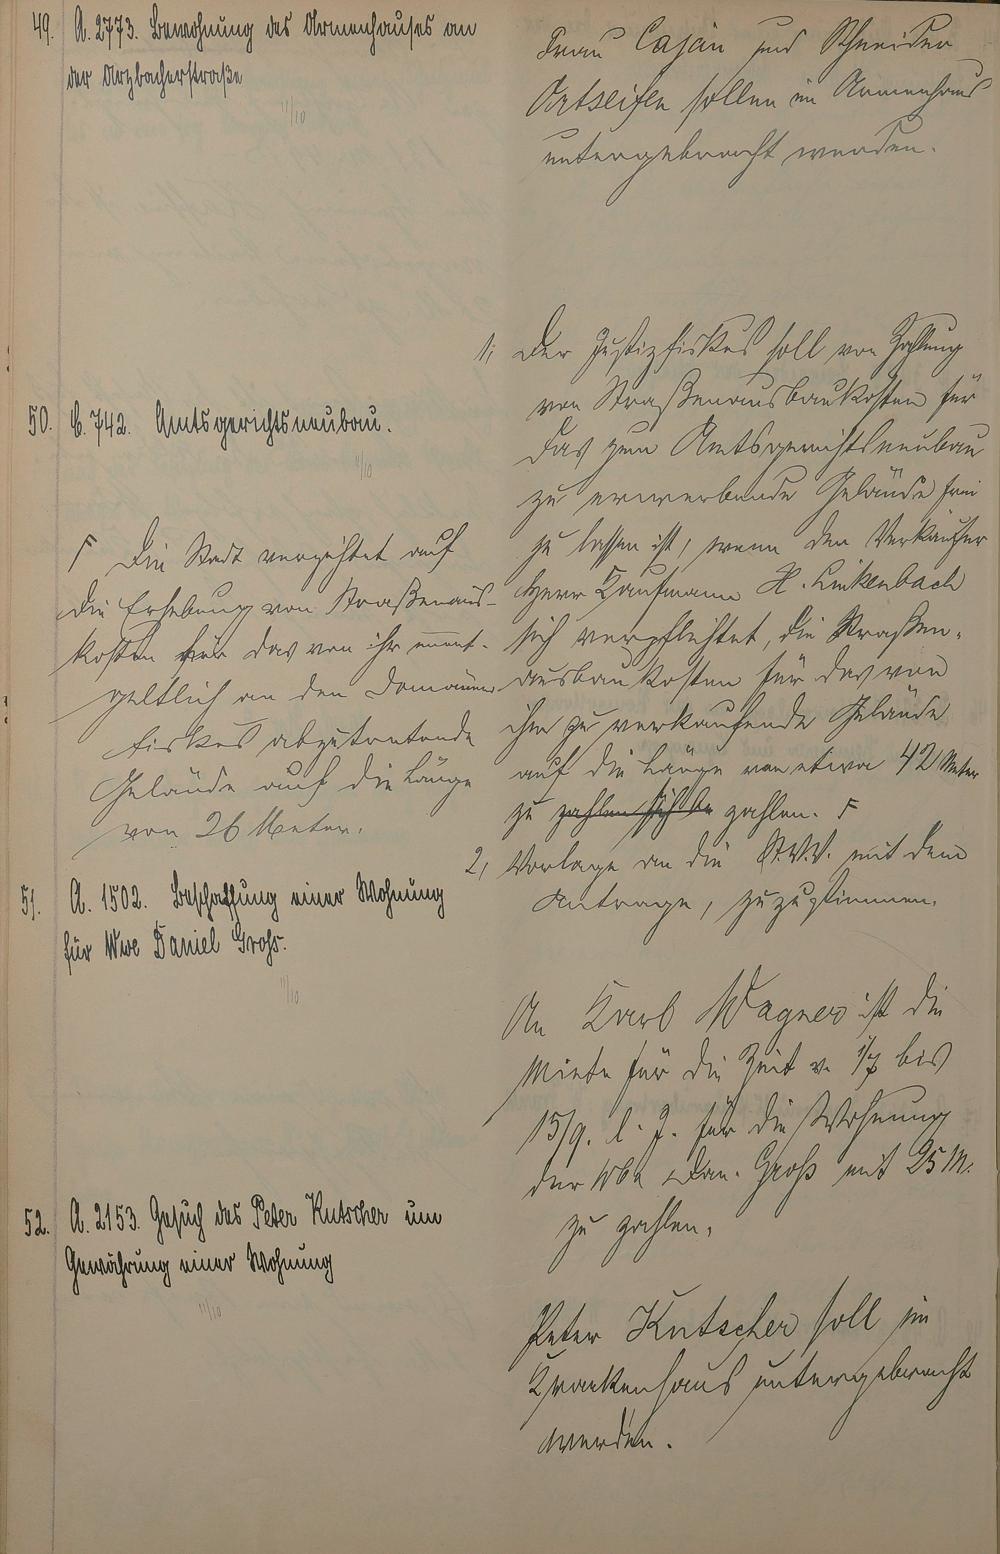 49. A. 2773. Bewohnung des Armenhauses an
der Arzbacherstraße
11/10
Frau Cajan und Schneider
Ortseifen sollen im Armenhaus
untergebracht werden.
50. C. 742. Amtsgerichtsneubau.
11/10
1, Der Justizfiskus soll von Zahlung
von Straßenausbaukosten für
das zum Amtsgerichtsneubau
zu erwerbende Gelände frei
zu lassen ist, wenn der Verkäufer
Herr Kaufmann H. Linkenbach
sich verpflichtet, die Straßen-
ausbaukosten für das von
ihm zu verkaufende Gelände
auf die Länge von etwa 42 Meter
zu zahlen sich be zahlen. F
2, Vorlage an die St.V.V. mit dem
Antrage, zuzustimmen.
F Die Stadt verzichtet auf
die Erhebung von Straßenaus-
kosten für das von ihr unent-
geltlich an den Domänen
fiskus abzutretende
Gelände auf die Länge
von 26 Meter.
51. A. 1502. Beschaffung einer Wohnung
für Wwe Daniel Gross.
11/10
An Karl Wagner ist die
Miete für die Zeit v. 1/7 bis
15/9. l. J. für die Wohnung
der Wwe Dan. Groß mit 25 M.
zu zahlen.
52. A. 2153. Gesuch des Peter Kutscher um
Gewährung einer Wohnung
11/10
Peter Kutscher soll im
Krankenhaus untergebracht
werden.